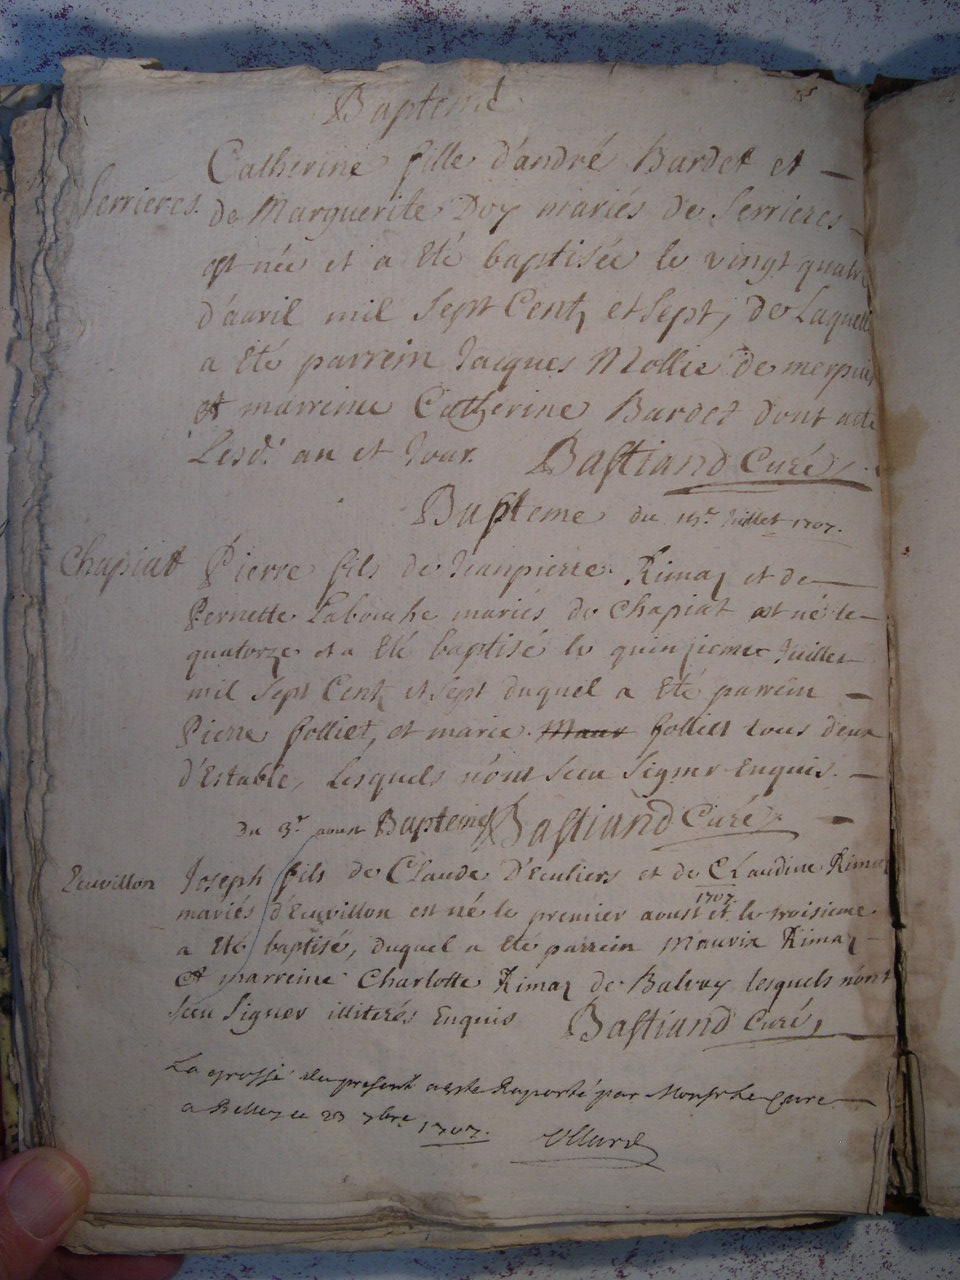 Bapteme
Catherine fille d'andré Bardet et
Serrieres. de Marguerite Doy mariés de Serrieres
est née et a Eté baptisée le vingt quatre
d'auril mil Sept Centz et Sept, de Laquelle
a Eté parrein Jacques Mollie de
et marreine Catherine Bardet dont acte
Lesd. an et Jour. Bastiand Curé
Bapteme du 15e Juillet 1707.
Chapiat Pierre fils de Jeanpierre Rimaz et de
Pernette Labouche mariés de Chapiat est né le
quatorze et a Eté baptisé le quinzieme Juillet
mil Sept Centz et Sept duquel a Eté parrein
Pierre folliet, et marie folliet tous deux
d'Estable, Lesquels n'ont Sceu Signer Enquis.
du 3e aoust Bapteme Bastiand Curé
Ecuvillon Joseph fils de Claude D'Eculiers et de Claudine Rimaz
1707
mariés d'Ecuvillon est né le premier aoust et le troisieme
a Eté baptisé, duquel a Eté parrein Maurix Rimaz
et marreine Charlotte Rimaz de Balvay lesquels n'ont
Sceu Signer illiterés Enquis Bastiand Curé
La grosse du present a este Raporté par Monsr Le Cure
a Belley ce 23 7bre 1707.